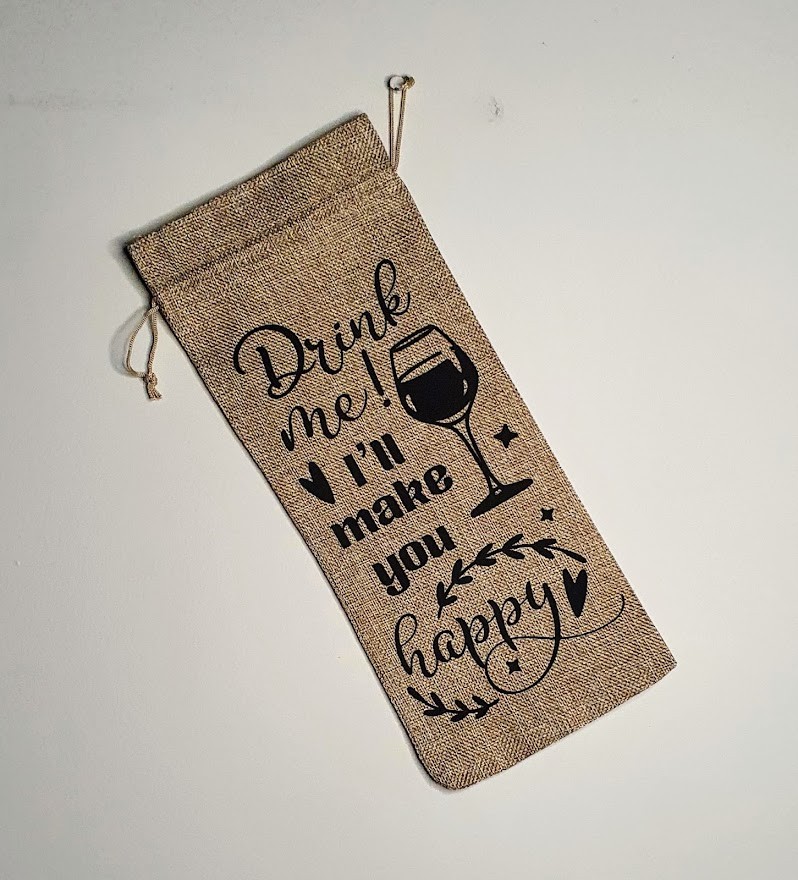 Drink
me!
I'll
make
you
happy